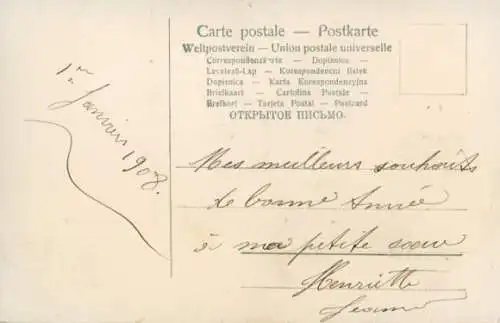 Carte postale — Postkarte
Weltpostverein — Union postale universelle
Correspondenzkarte — Dopisnice —
Levelező-Lap — Korespondenční lístek
Dopisnica — Karta Korespondencyjna
Briefkaart — Cartolina Postale —
Brefkort — Tarjeta Postal — Postcard
ОТКРЫТОЕ ПИСЬМО.
1er Janvier 1908.
Mes meilleurs souhaits
de bonne Année
à ma petite soeur
Henriette
Jeanne